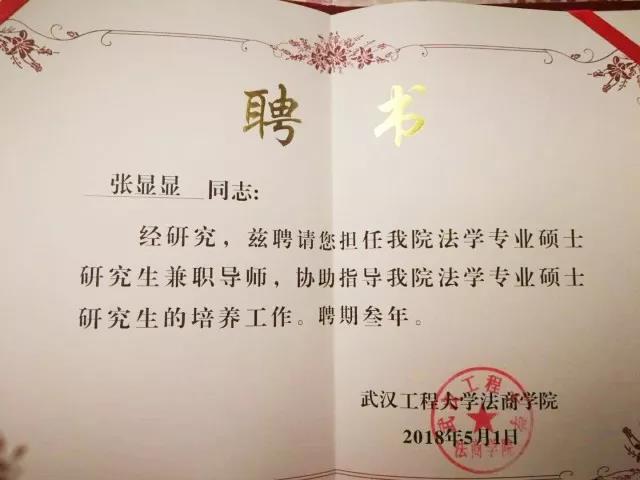 聘书
张显显 同志:
经研究，兹聘请您担任我院法学专业硕士
研究生兼职导师，协助指导我院法学专业硕士
研究生的培养工作。聘期叁年。
武汉工程大学法商学院
2018年5月1日
武汉工程大学
法商学院